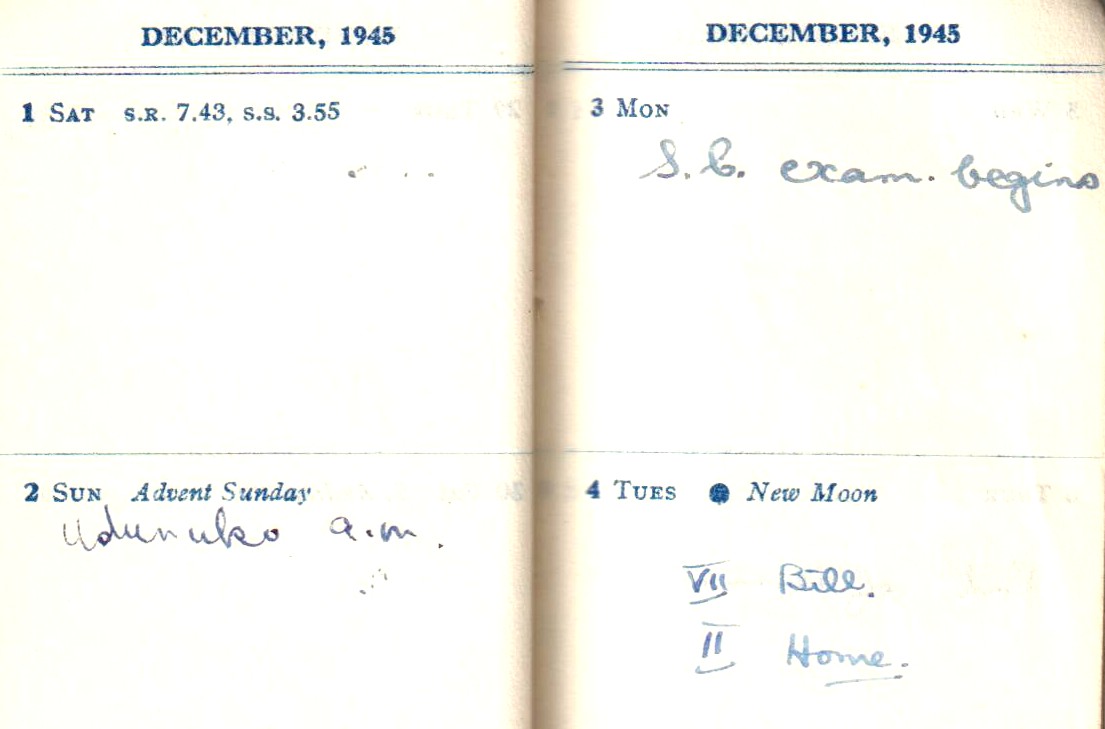 DECEMBER, 1945
1 SAT S.R. 7.43, S.S. 3.55
2 SUN Advent Sunday
Udunuko a.m.
DECEMBER, 1945
3 MON
S.C. exam. begins
4 TUES New Moon
VII Bill.
II Home.